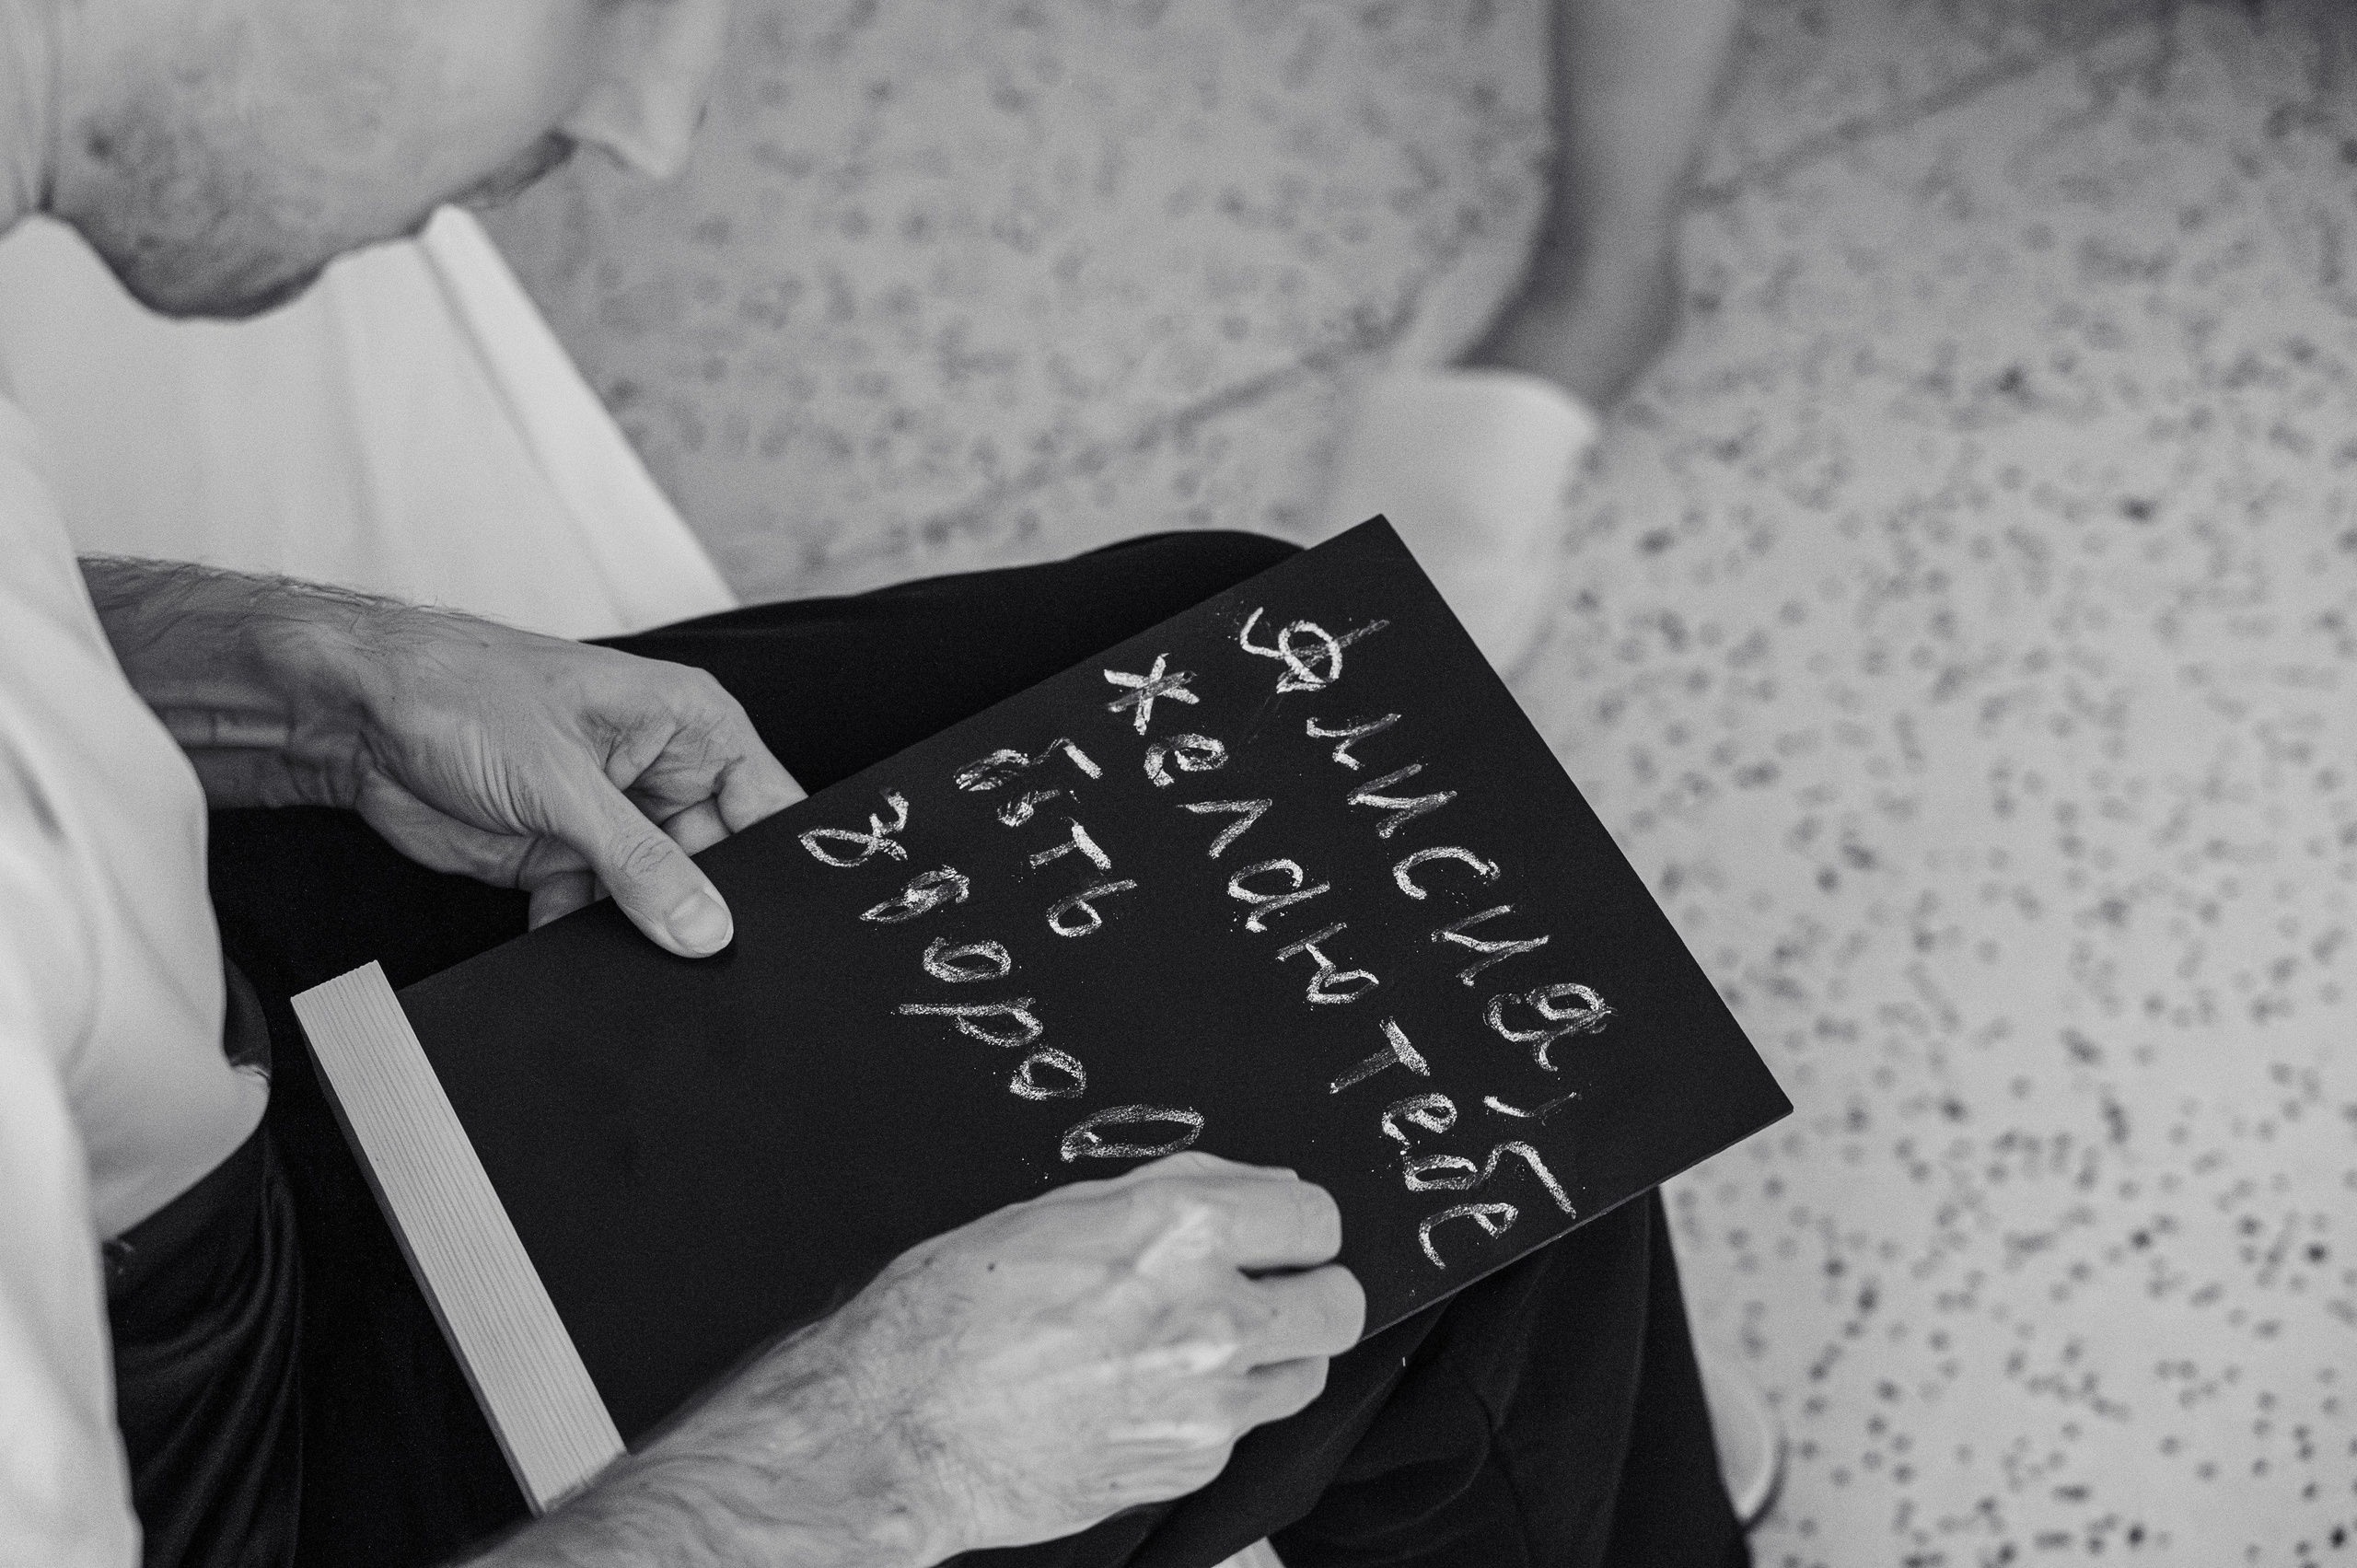 Алисия,
желаю тебе
быть
здоров